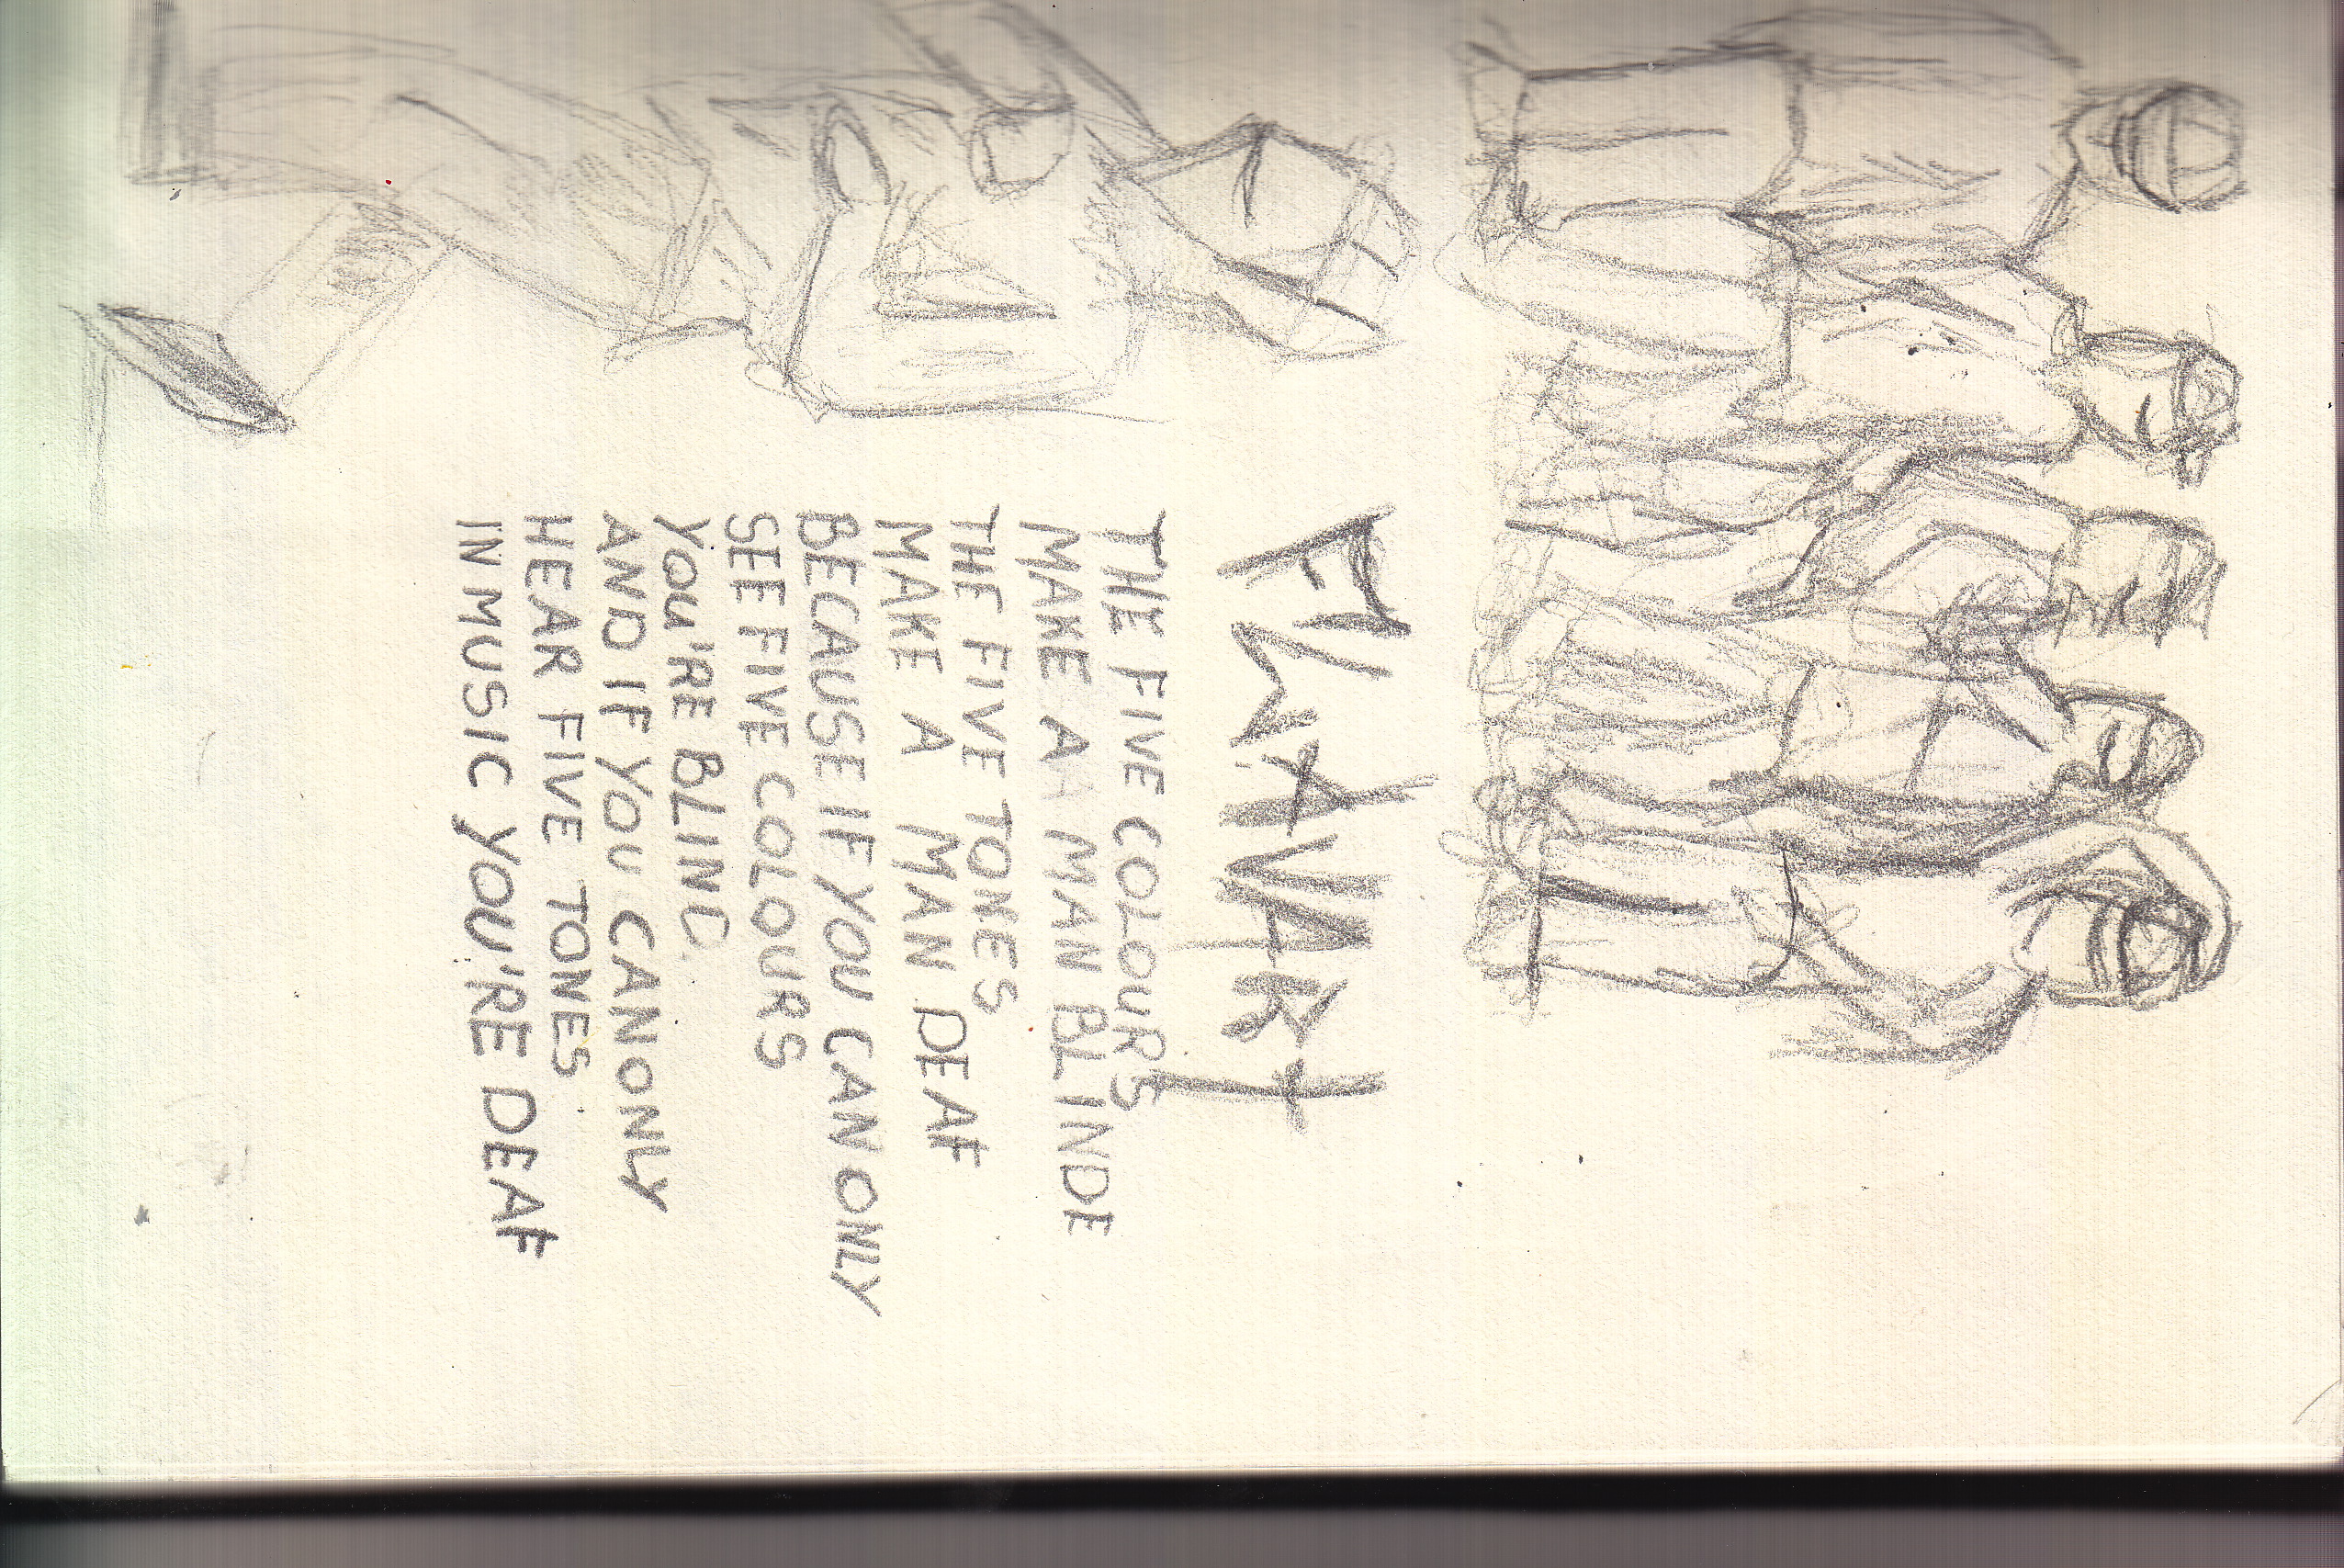 THE FIVE COLOURS
MAKE A MAN BLINDE
THE FIVE TONES
MAKE A MAN DEAF
BECAUSE IF YOU CAN ONLY
SEE FIVE COLOURS
YOU'RE BLIND
AND IF YOU CAN ONLY
HEAR FIVE TONES
IN MUSIC YOU'RE DEAF